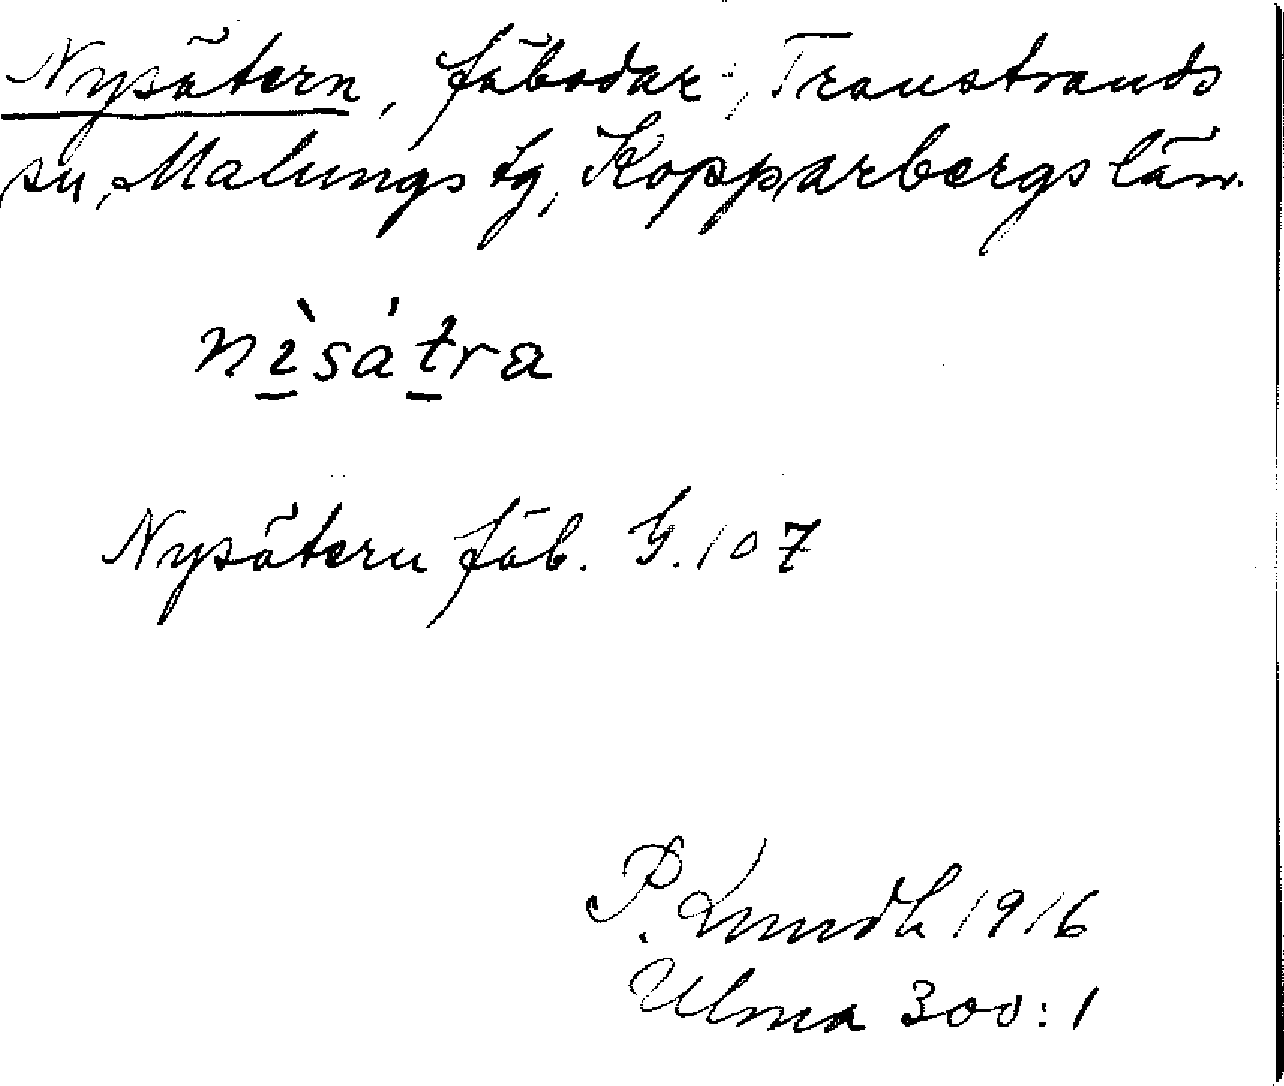 Nysätern, fäbodar, Transtrands
sn, Malungs tg, Kopparbergs län.
nìsátra
Nysätern fäb. G. 107
P. Lundh 1916
Ulma 300:1